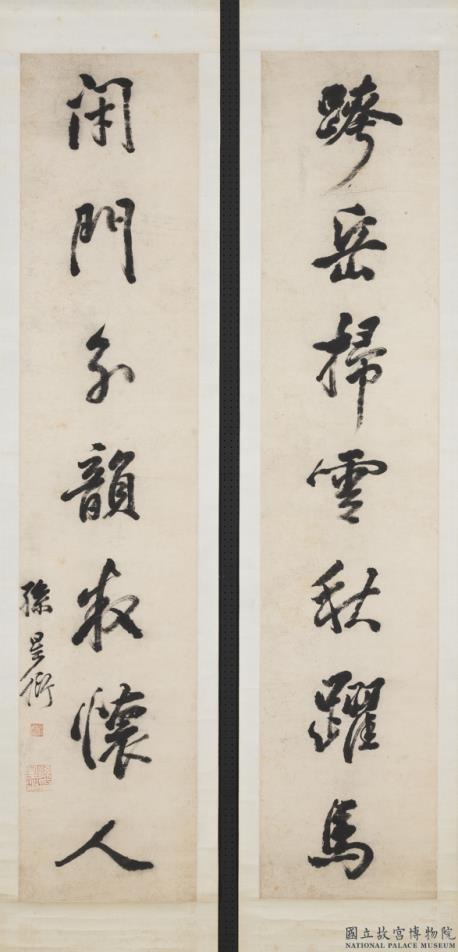 跨岳掃雲秋躍馬
閉門分韻懷人
孫星衍
國立故宮博物院
NATIONAL PALACE MUSEUM